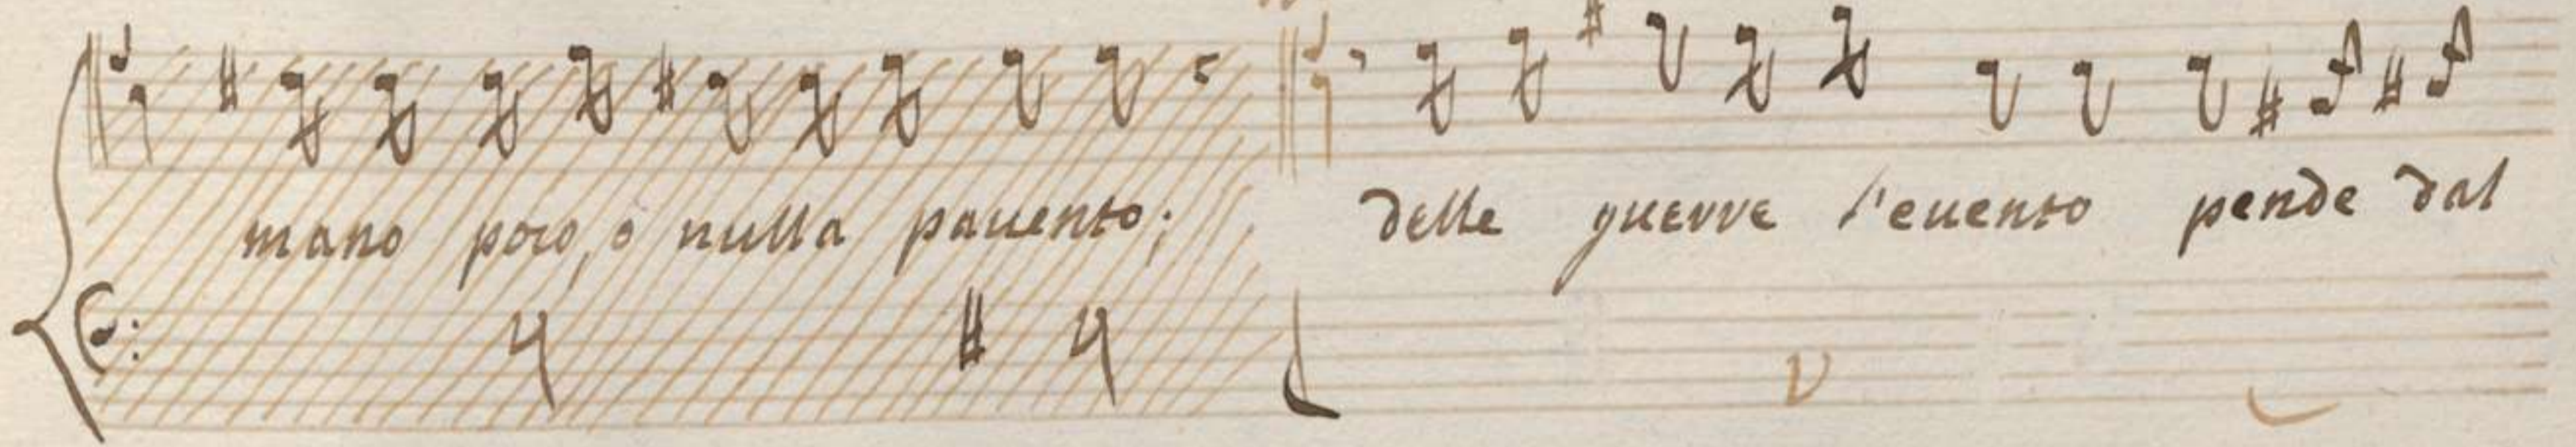 mano poco, o nulla pauento; delle guerre l'euento pende dal